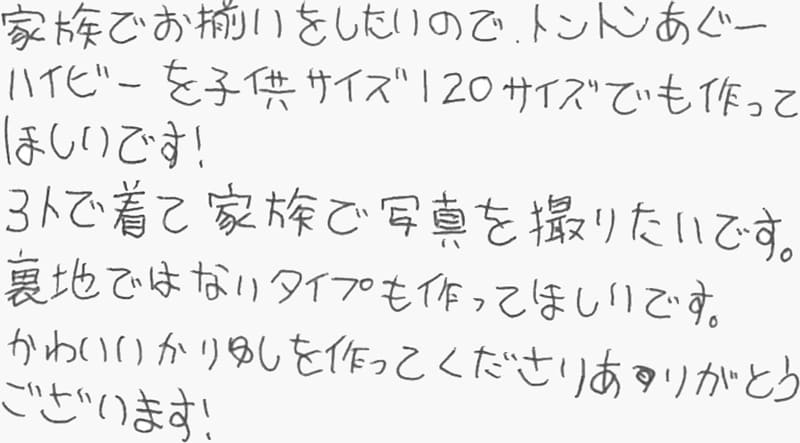 家族でお揃いをしたいので、トントンあぐー
ハイビーを子供サイズ120サイズでも作って
ほしいです!
3人で着て家族で写真を撮りたいです。
裏地ではないタイプも作ってほしいです。
かわいいかりゆしを作ってくださりありがとう
ございます!